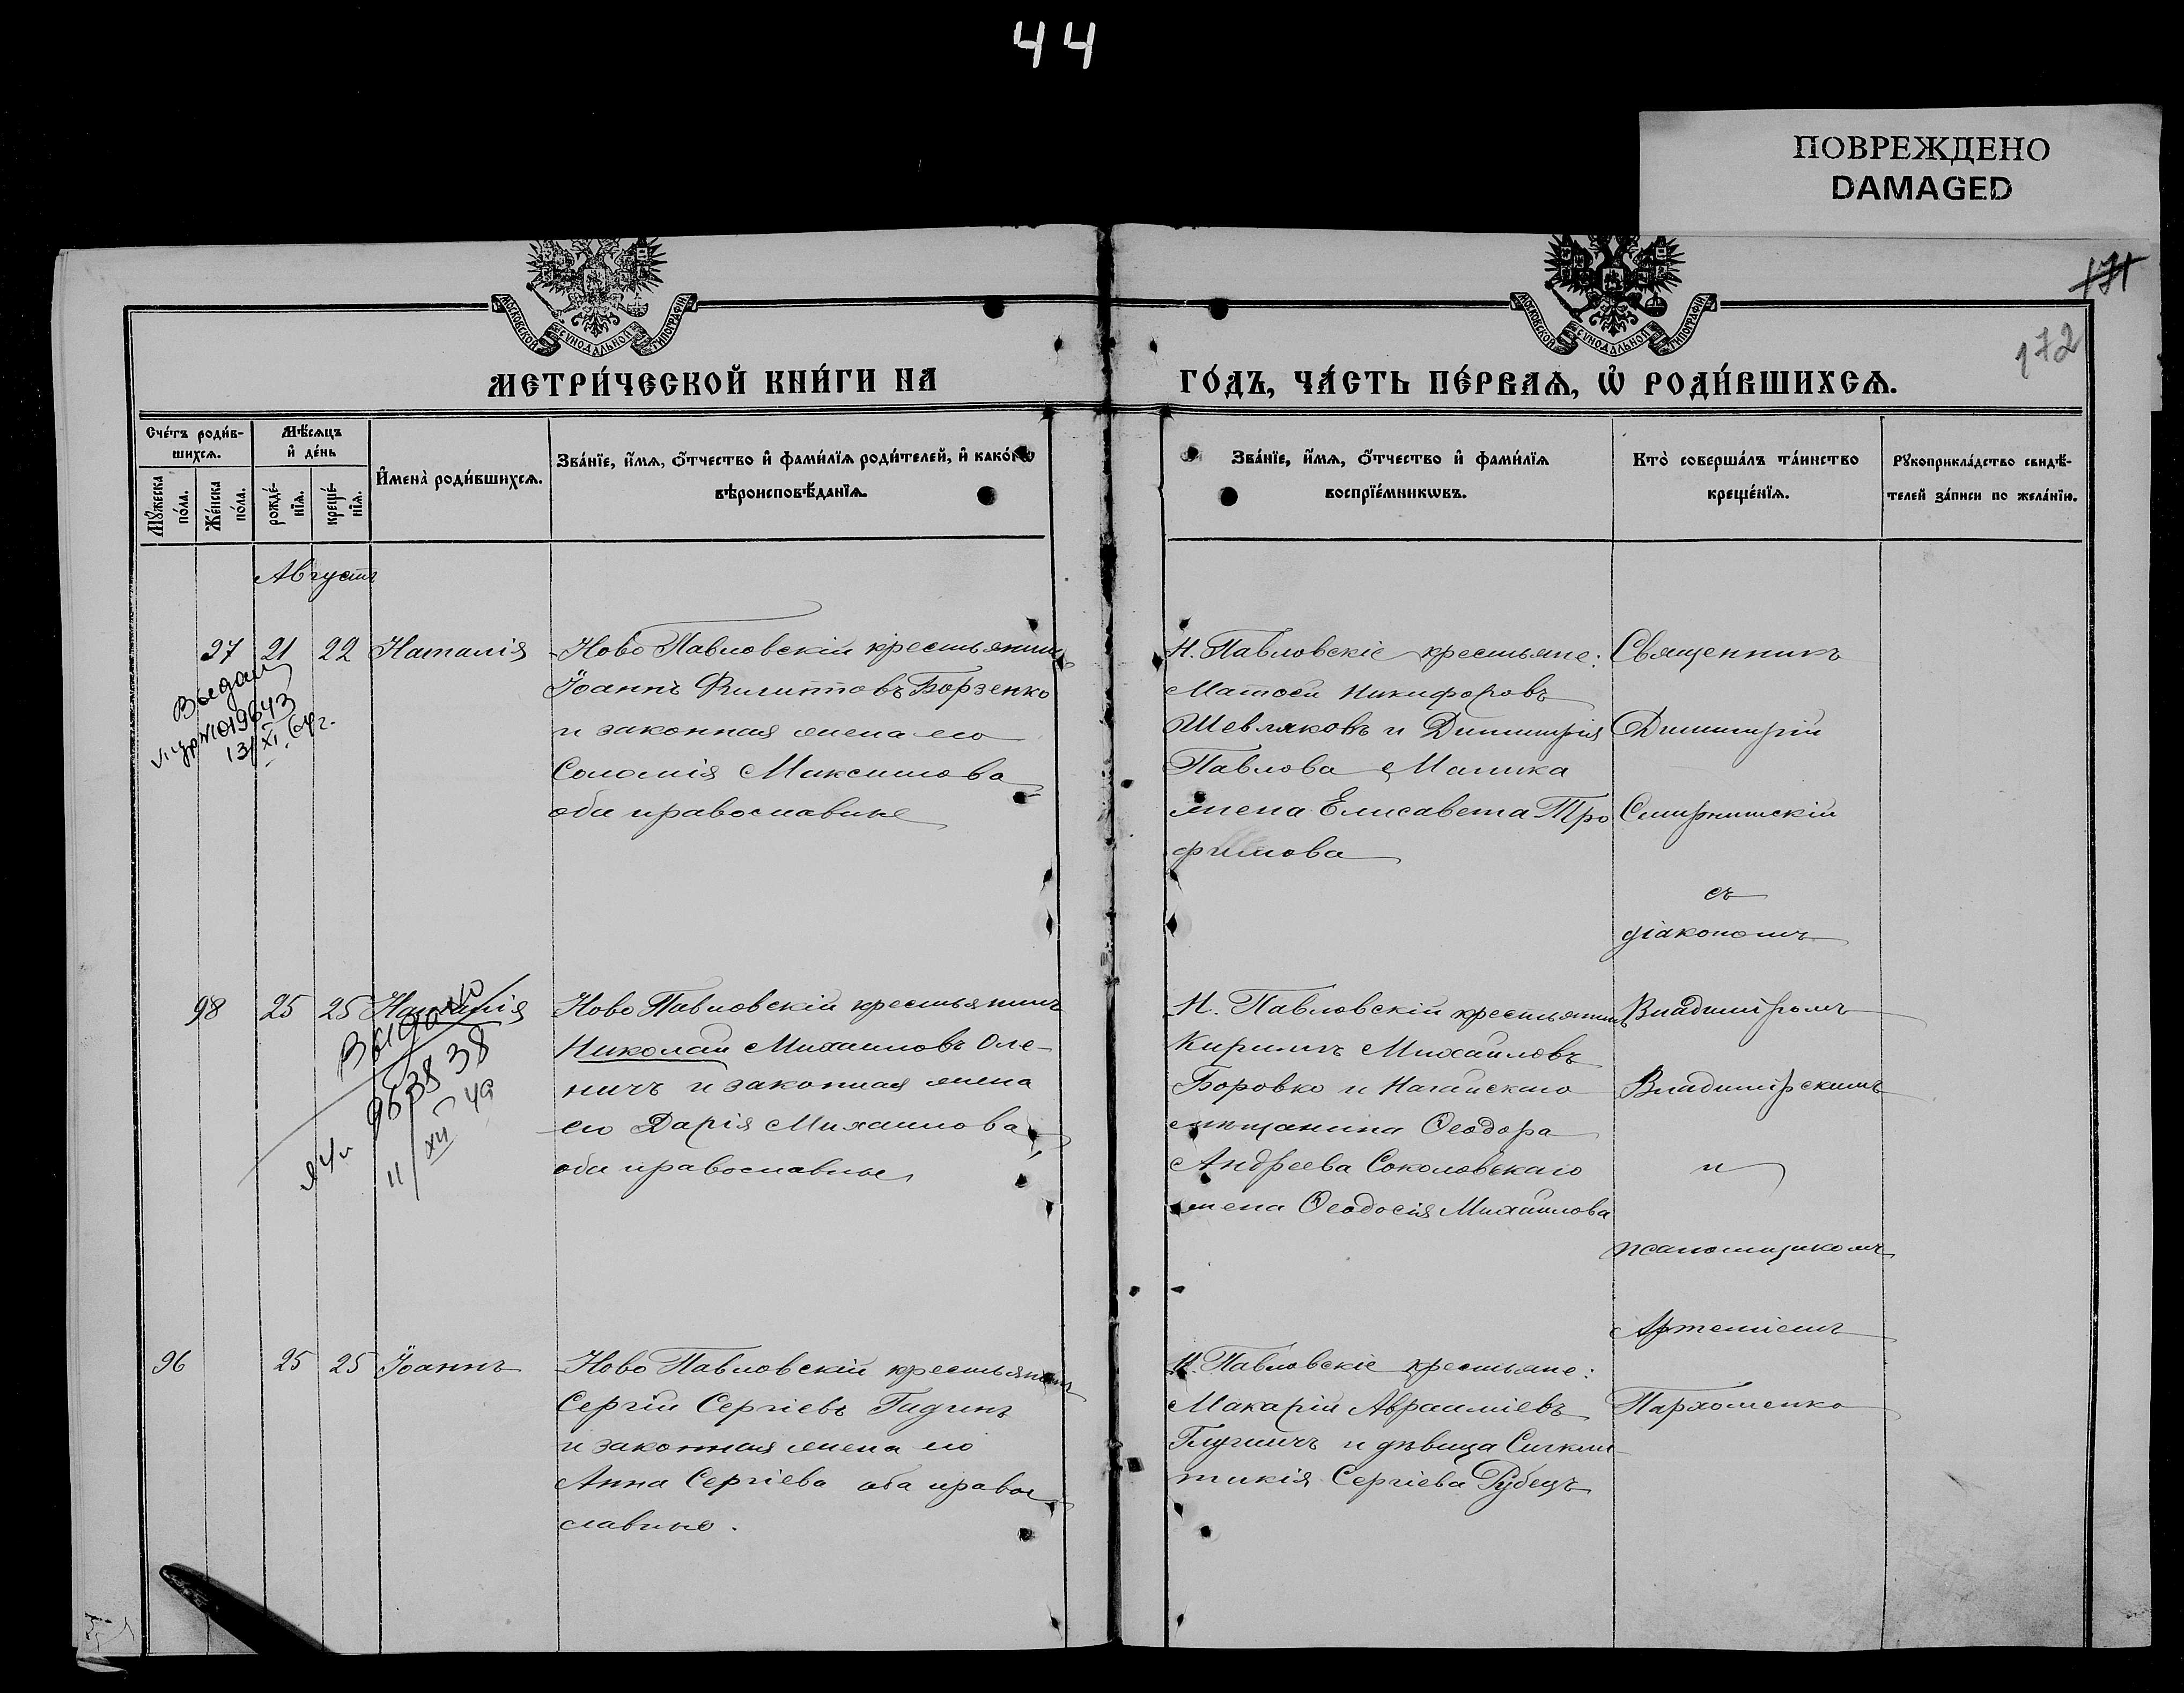 44
ПОВРЕЖДЕНО
DAMAGED
171
172
МОСКОВСКОЙ СУНОДАЛЬНОЙ ТИПОГРАФІИ
МОСКОВСКОЙ СУНОДАЛЬНОЙ ТИПОГРАФІИ
МЕТРИ́ЧЕСКОЙ КНИ́ГИ НА
ГО́ДЪ, ЧА́СТЬ ПЕ́РВАѦ, Ѡ҆ РОДИ́ВШИХСѦ.
Сче́тъ роди́в-
шихсѧ.
Мꙋ́жеска
по́ла.
Же́нска
по́ла.
Мѣ́сѧцъ
и҆ де́нь
рожде́-
нїѧ.
креще́-
нїѧ.
И҆мена̀ роди́вшихсѧ.
Зва́нїе, и҆́мѧ, ѻ҆́тчество и҆ фами́лїѧ роди́телей, и҆ како́гѡ
вѣроисповѣ́данїѧ.
Зва́нїе, и҆́мѧ, ѻ҆́тчество и҆ фами́лїѧ
воспрїе́мникѡвъ.
Кто̀ соверша́лъ та́инство
креще́нїѧ.
Рꙋкоприкла́дство свидѣ́-
телей за́писи по жела́нїю.
Августъ
97 21 22 Наталія
Ново Павловскій крестьянинъ
Іоаннъ Филипповъ Борзенко
и законная жена его
Соломія Максимова
оба православные
Н. Павловскіе крестьяне:
Матѳей Никифоровъ
Шевляковъ и Димитрія
Павлова Малика
жена Елисавета Тро
фимова
Священникъ
Димитрій
съ
діакономъ
13/XI 64г.
98 25 25 Наталія
Ново Павловскій крестьянинъ
Николай Михаиловъ Оле-
ничъ и законная жена
его Дарія Михаилова
оба православные
Н. Павловскій крестьянинъ
Кириллъ Михаиловъ
Боровко и Ногайскаго
мѣщанина Ѳеодора
Андреева Соколовскаго
жена Ѳеодосія Михаилова
Владиміромъ
Владимірскимъ
и
псаломщикомъ
Артеміемъ
Пархоменко
Выдано
963838
11/XII 49
96 25 25 Іоаннъ
Ново Павловскій крестьянинъ
Сергій Сергіевъ
и законная жена его
Анна Сергіева оба право
славные.
Н. Павловскіе крестьяне:
Макарій Авраміевъ
и дѣвица Синкли
тикія Сергіева Рубецъ